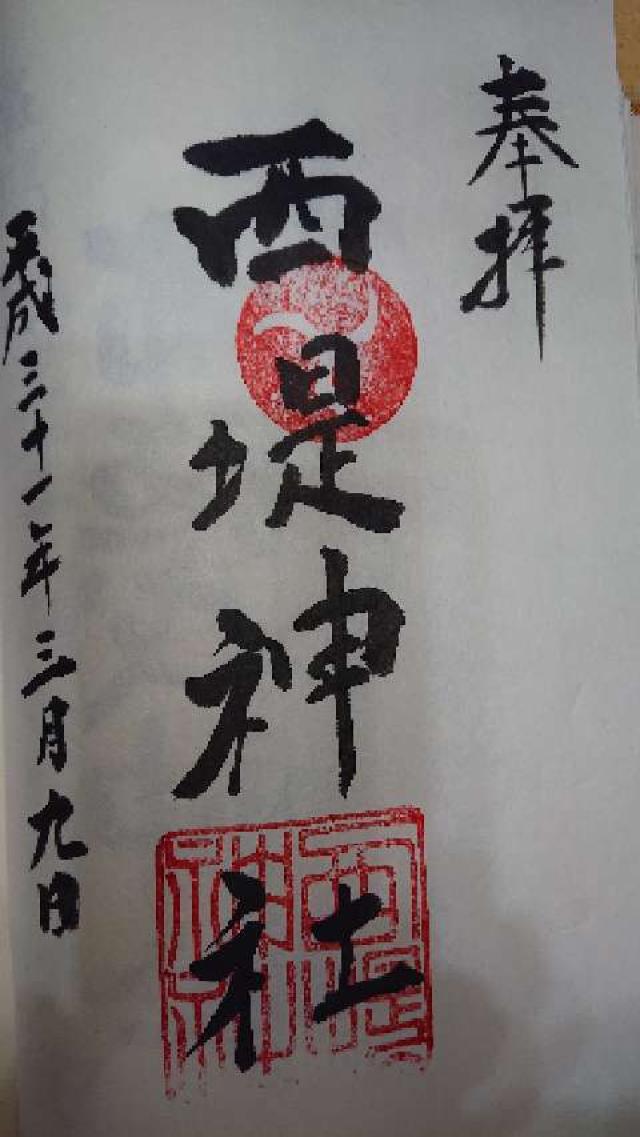 奉拝
西堤神社
西堤神社
平成三十一年三月九日